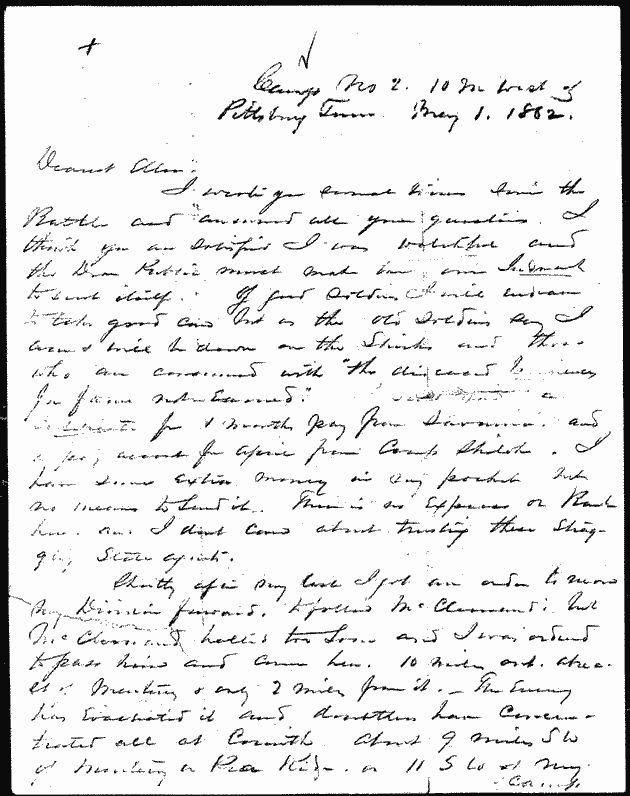 Camp No 2. 10 M West of
Pittsburg Tenn. May 1. 1862.
Dearest Ellen,
I wrote you several times since the
Battle and answered all your questions. I
think you are satisfied I was watchful and
the Dear Public must make its own Judgment
to suit itself. Of good soldiers I will endeavor
to take good care but as the old soldiers say I
am & will be down on the Shirks and those
who are consumed with "the diseased
for fame not Earned."
for 2 months pay from Savannah and
a pay account for April from Camp Shiloh. I
have some Extra money in my pocket but
no means to send it. There is no Express or Bank
here. and I dont care about trusting these Strag-
gling State agents.
Shortly after my last I got an order to move
my Division forward, to follow McClernand: but
McClernand halted too soon and I was ordered
to pass him and came here. 10 miles out. abrea-
st of Monterey & only 2 miles from it. — The Enemy
has Evacuated it and doubtless have Concen-
trated all at Corinth about 9 miles SW
of Monterey or Pea Ridge. or 11 SW of my
Camp.